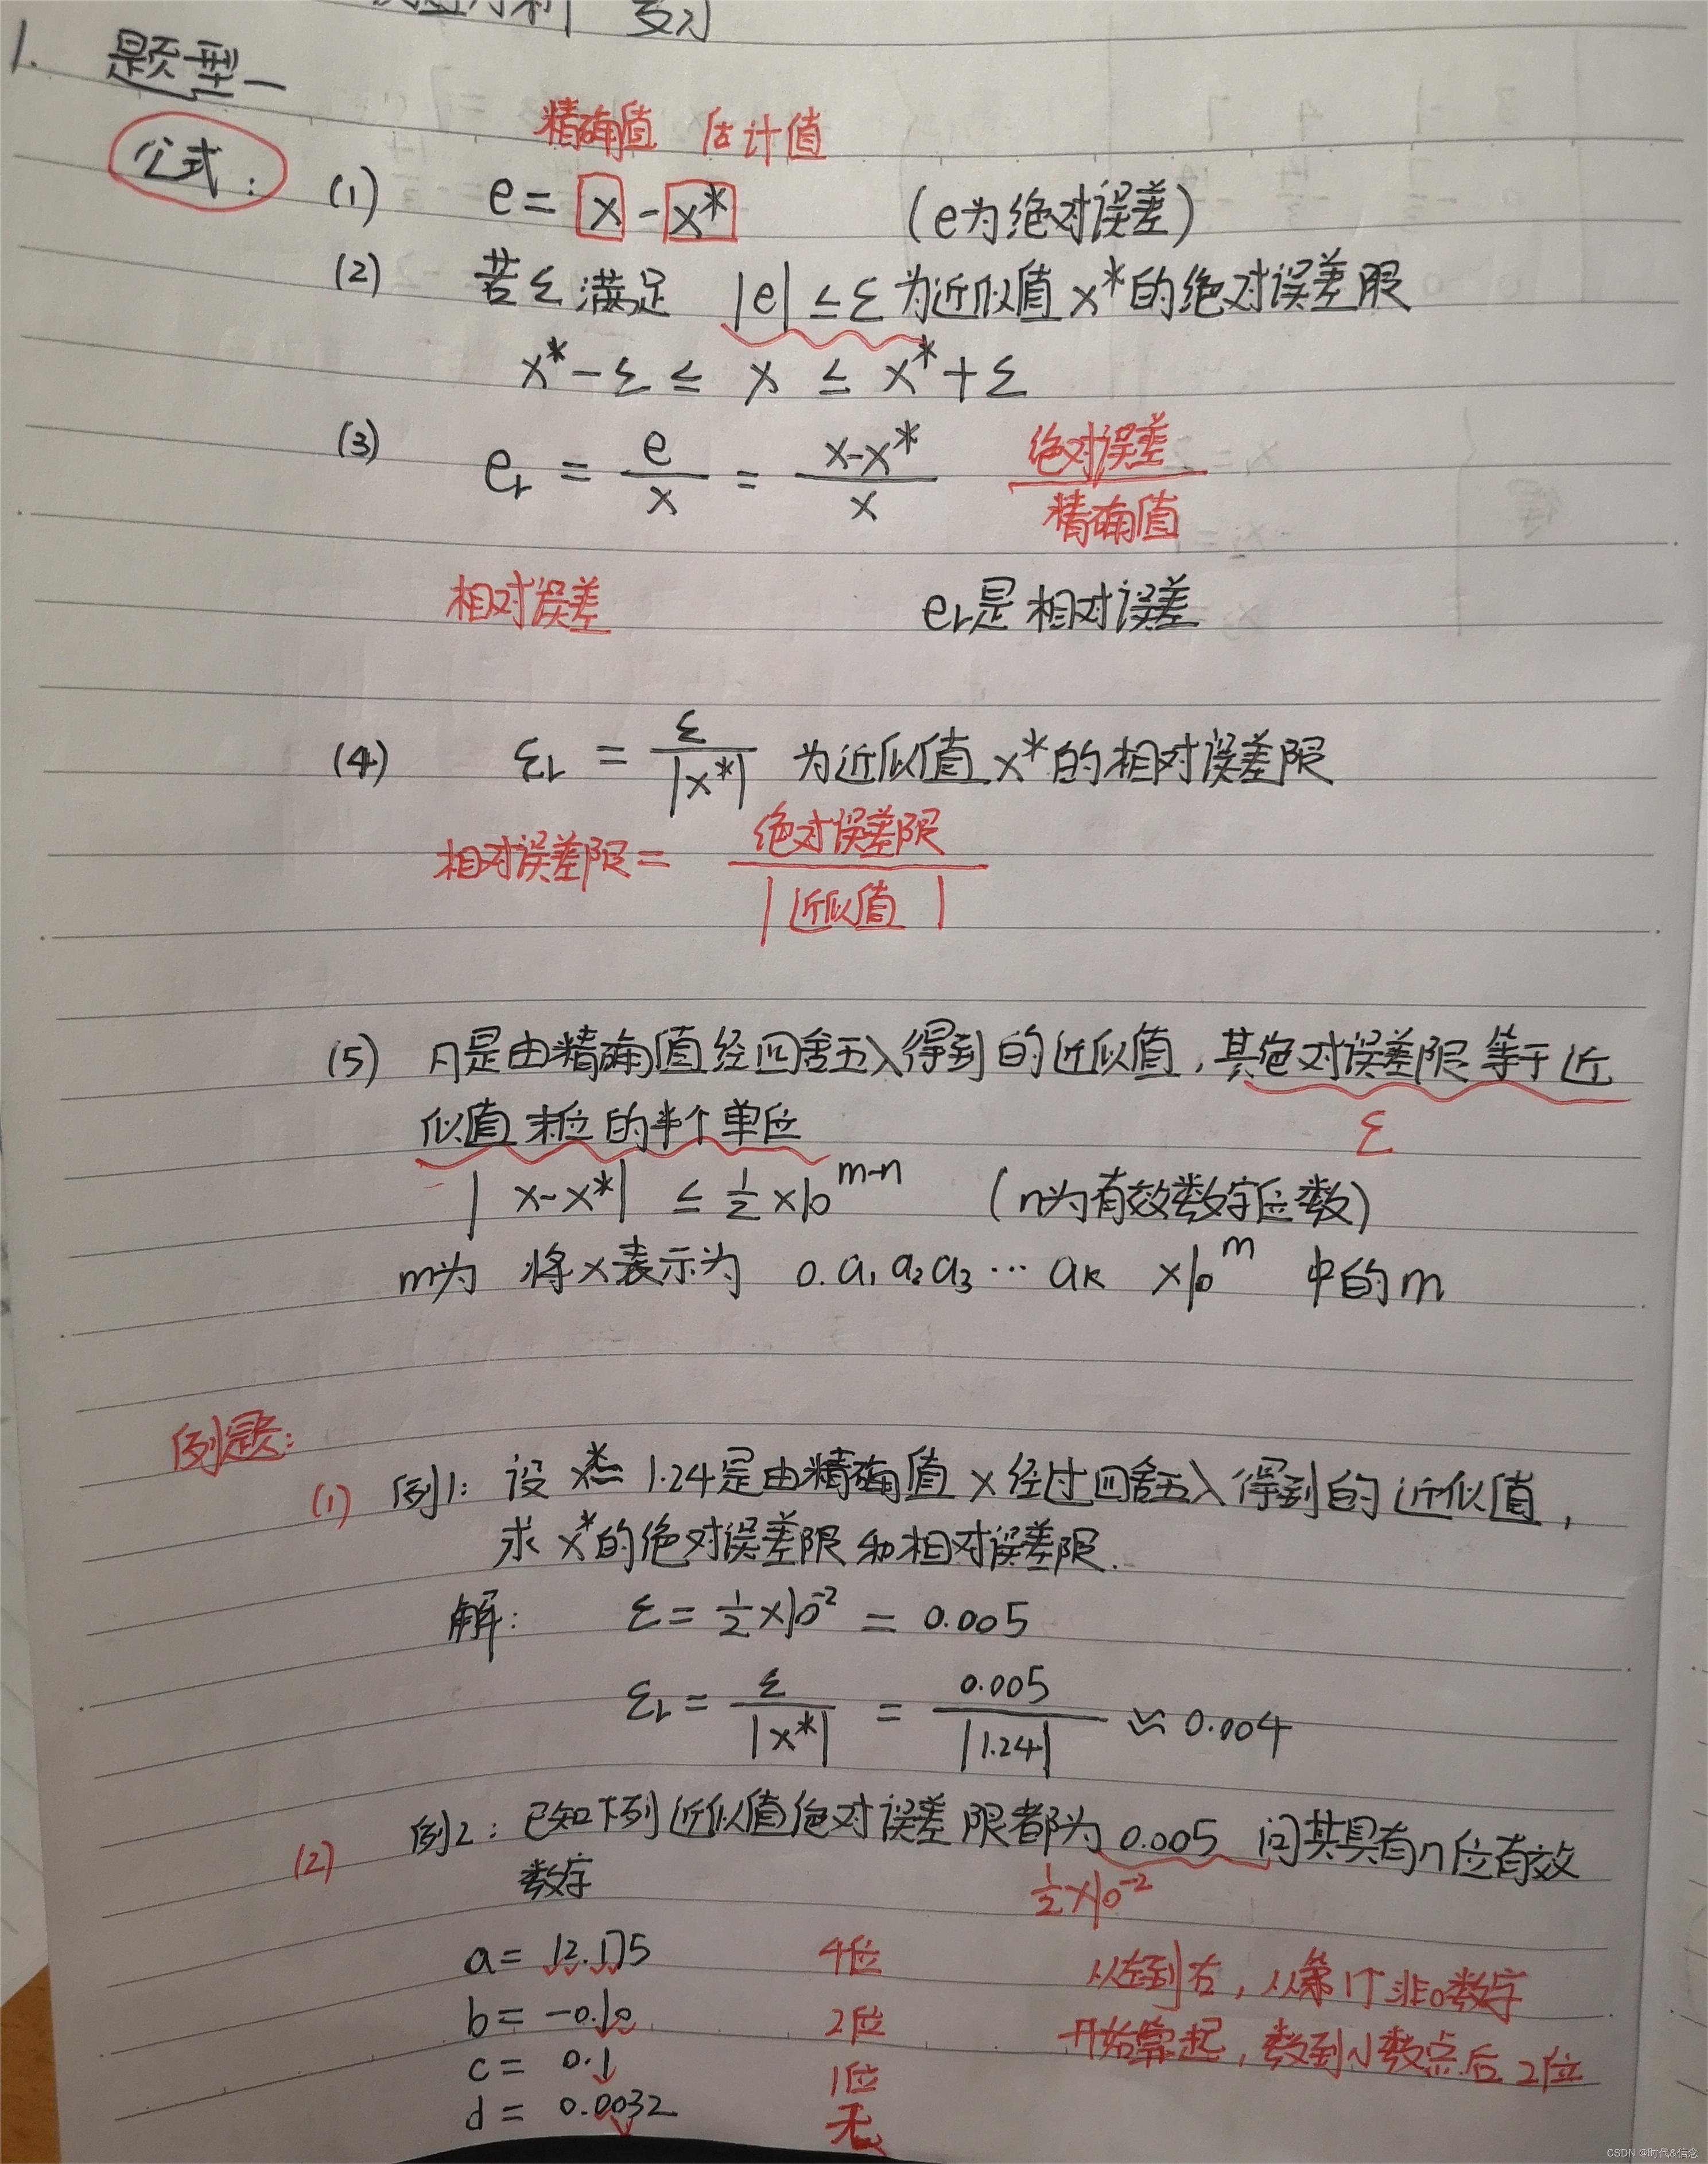 复习
1. 题型一
精确值 估计值
公式: (1) e = x - x* (e为绝对误差)
(2) 若ε满足 |e| ≤ ε 为近似值 x* 的绝对误差限
x* - ε ≤ x ≤ x* + ε
(3) er = e/x = (x-x*)/x 绝对误差/精确值
相对误差 er是相对误差
(4) εr = ε/|x*| 为近似值 x* 的相对误差限
相对误差限 = 绝对误差限/|近似值|
(5) 凡是由精确值经四舍五入得到的近似值,其绝对误差限等于近
似值末位的半个单位 ε
|x-x*| ≤ 1/2 × 10^(m-n) (n为有效数字位数)
m为 将x表示为 0.a₁a₂a₃…aₖ ×10^m 中的m
例题:
(1) 例1: 设 x* = 1.24是由精确值 x 经过四舍五入得到的近似值,
求 x* 的绝对误差限和相对误差限.
解: ε = 1/2 × 10^-2 = 0.005
εr = ε/|x*| = 0.005/|1.24| ≈ 0.004
(2) 例2: 已知下列近似值绝对误差限都为 0.005 问其具有n位有效
数字 1/2 × 10^-2
a = 12.175 4位 从左到右,从第1个非0数字
b = -0.10 2位 开始算起,数到小数点后2位
c = 0.1 1位
d = 0.0032 无
CSDN @时代&信念